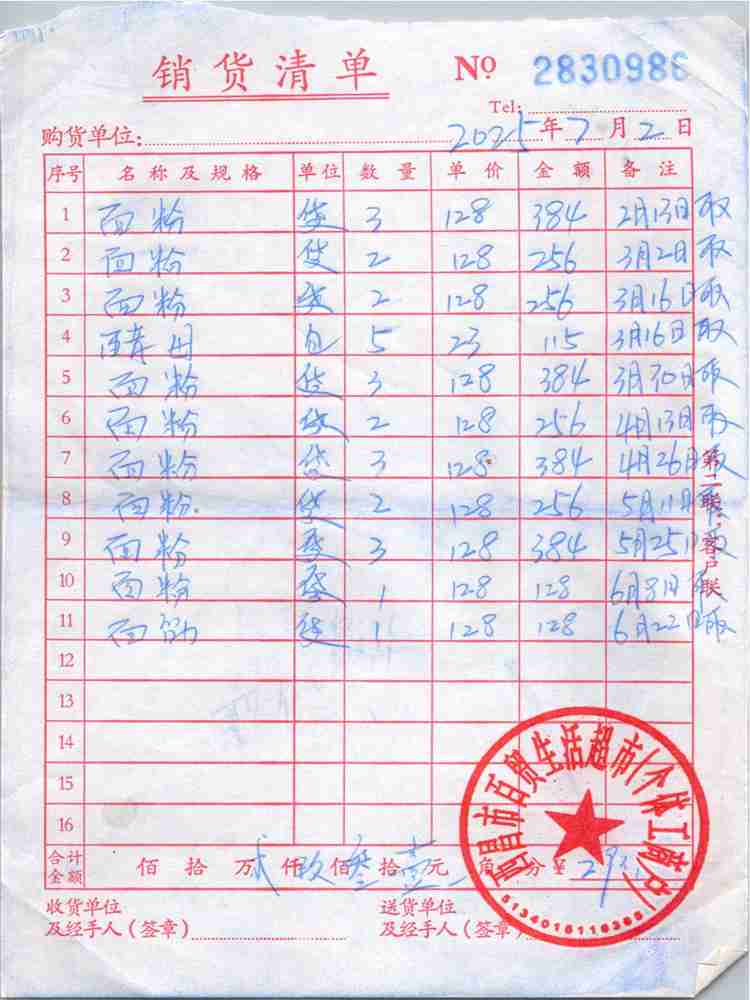 销货清单 № 2830986
Tel:
购货单位: 2025年7月2日
序号 名称及规格 单位 数量 单价 金额 备注
1 面粉 袋 3 128 384 2月13日取
2 面粉 袋 2 128 256 3月2日取
3 面粉 袋 2 128 256 3月16日取
4 酵母 包 5 23 115 3月16日取
5 面粉 袋 3 128 384 3月30日取
6 面粉 袋 2 128 256 4月13日取
7 面粉 袋 3 128 384 4月26日取
8 面粉 袋 2 128 256 5月11日取
9 面粉 袋 3 128 384 5月25日取
10 面粉 袋 1 128 128 6月8日取
11 面粉 袋 1 128 128 6月22日取
12
13
14
15
16
合计金额 佰 拾 万 贰仟玖佰叁拾壹元 角 分 ¥2931
收货单位及经手人(签章)
送货单位及经手人(签章)
第二联:客户联
西昌市百贸生活超市(个体工商户)